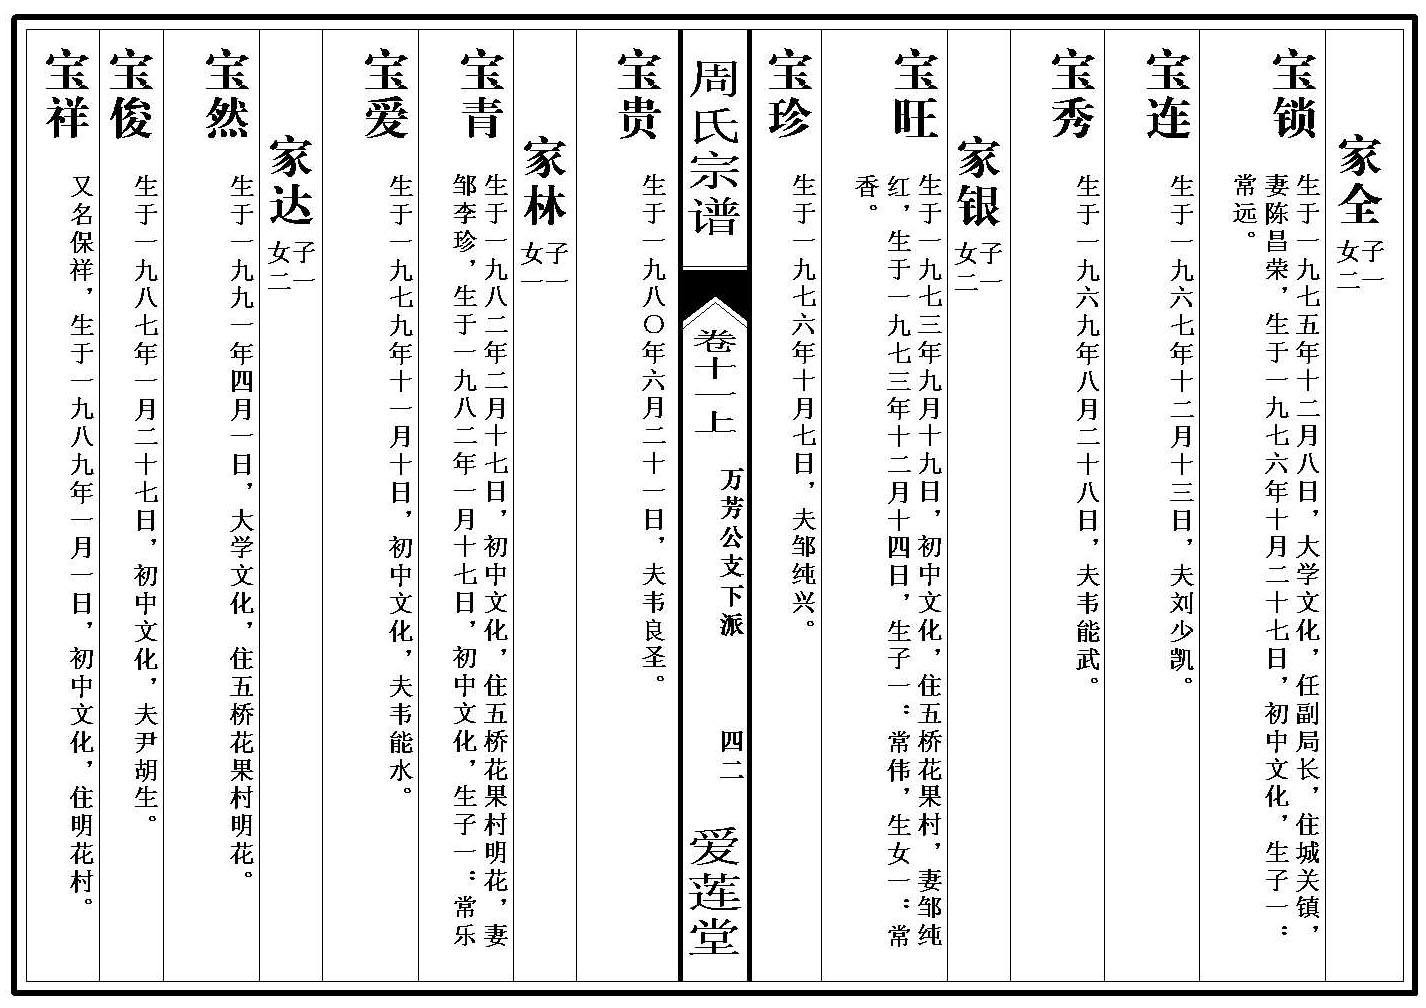 家全 子一
女二
宝锁
生于一九七五年十二月八日，大学文化，任副局长，住城关镇，
妻陈昌荣，生于一九七六年十月二十七日，初中文化，生子一：
常远。
宝连
生于一九六七年十二月十三日，夫刘少凯。
宝秀
生于一九六九年八月二十八日，夫韦能武。
家银 子一
女二
宝旺
生于一九七三年九月十九日，初中文化，住五桥花果村，妻邹纯
红，生于一九七三年十二月十四日，生子一：常伟，生女一：常
香。
宝珍
生于一九七六年十月七日，夫邹纯兴。
周氏宗谱
卷十一上
万芳公支下派
四二
爱莲堂
宝贵
生于一九八〇年六月二十一日，夫韦良圣。
家林 子一
女一
宝青
生于一九八二年二月十七日，初中文化，住五桥花果村明花，妻
邹李珍，生于一九八二年一月十七日，初中文化，生子一：常乐
宝爱
生于一九七九年十一月十日，初中文化，夫韦能水。
家达 子一
女二
宝然
生于一九九一年四月一日，大学文化，住五桥花果村明花。
宝俊
生于一九八七年一月二十七日，初中文化，夫尹胡生。
宝祥
又名保祥，生于一九八九年一月一日，初中文化，住明花村。